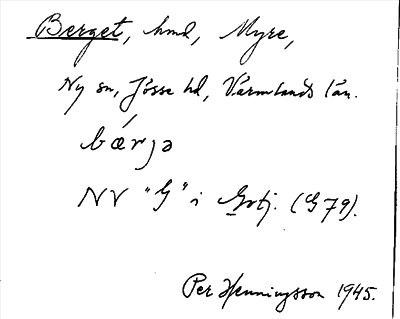 Berget, hmd, Myre,
Ny sn, Jösse hd, Värmlands län.
bǽrjə
NV "G" i Grtj. (G 79).
Per Henningsson 1945.